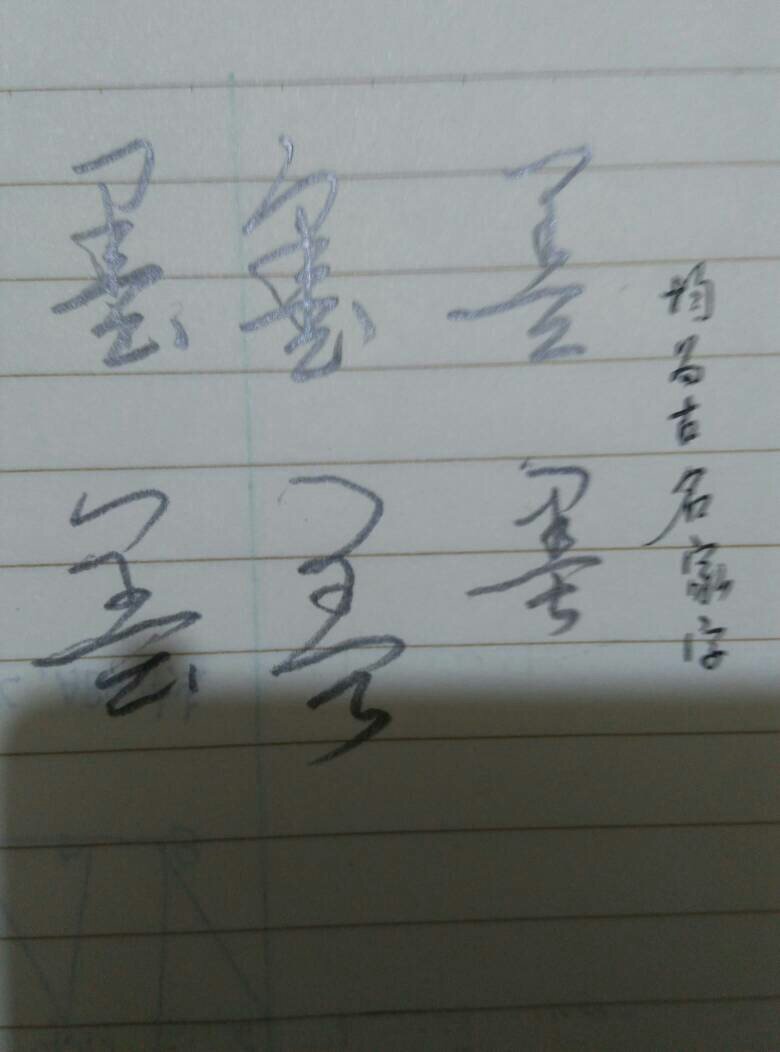 墨 墨 墨
墨 墨 墨
均为古名家字